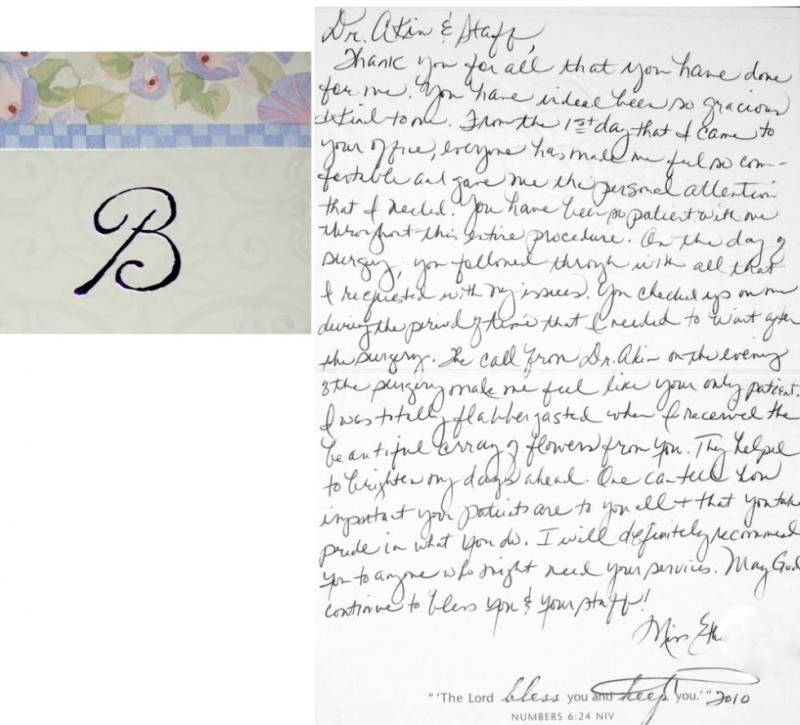 B
Dr. Akin & Staff,
Thank you for all that you have done
for me. You have indeed been so gracious
& kind to me. From the 1st day that I came to
your office, everyone has made me feel so com-
fortable and gave me the personal attention
that I needed. You have been so patient with me
throughout this entire procedure. On the day of
surgery, you followed through with all that
I requested with my issues. You checked up on me
during the period of time that I needed to wait after
the surgery. The call from Dr. Akin on the evening
of the surgery made me feel like your only patient.
I was totally flabbergasted when I received the
beautiful array of flowers from you. They helped
to brighten my days ahead. One can tell how
important your patients are to you all + that you take
pride in what you do. I will definitely recommend
you to anyone who might need your services. May God
continue to bless you & your staff!
Miss
"'The Lord bless you and keep you.'" 2010
NUMBERS 6:24 NIV